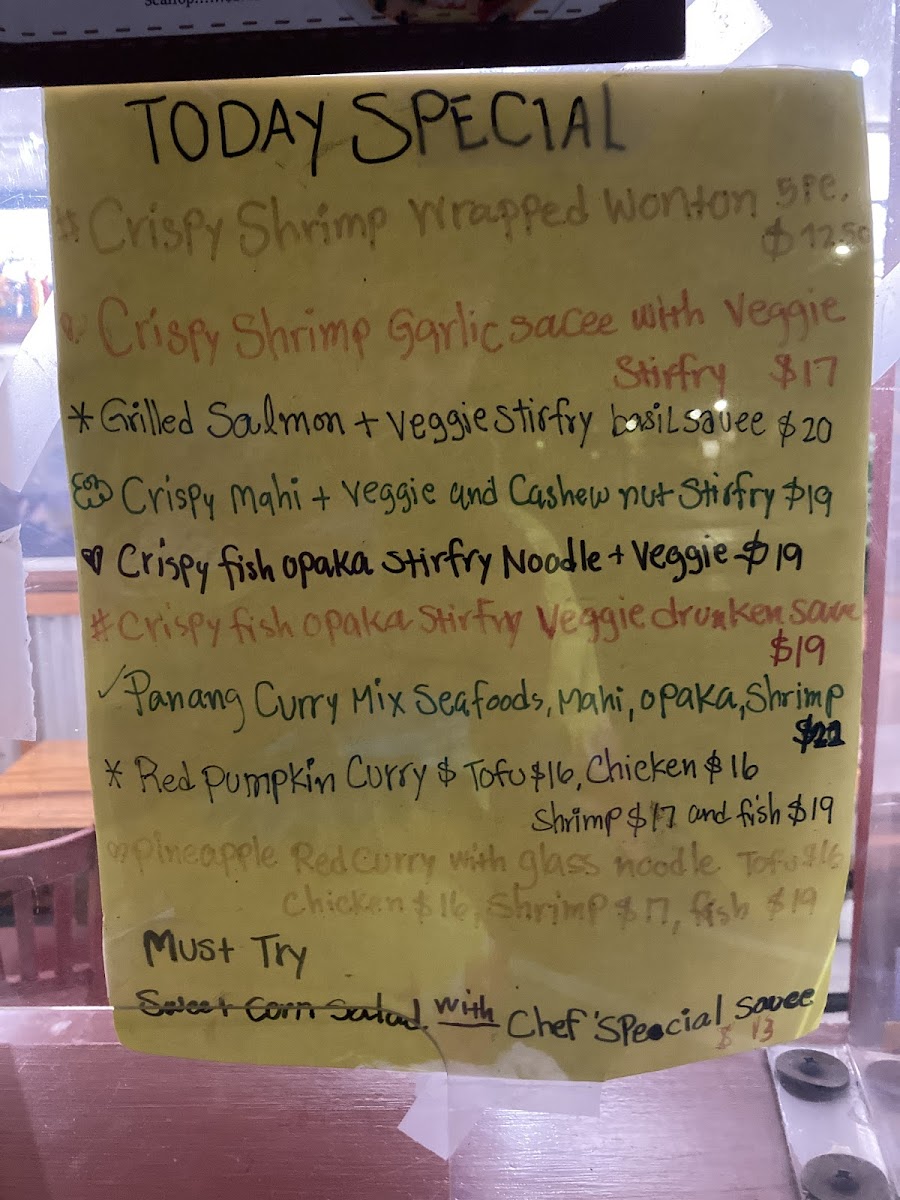 TODAY SPECIAL
# Crispy Shrimp Wrapped Wonton 5pc.
$12.50
Crispy Shrimp Garlic sacee with Veggie
Stirfry $17
* Grilled Salmon + Veggie stirfry basil sauee $20
Crispy Mahi + Veggie and Cashew nut Stirfry $19
♥ Crispy fish opaka Stirfry Noodle + Veggie $19
# Crispy fish opaka Stirfry Veggie drunken saue
$19
✓ Panang Curry Mix Seafoods, Mahi, opaka, Shrimp
$22
* Red Pumpkin Curry $ Tofu $16, Chicken $16
Shrimp $17 and fish $19
♡ Pineapple Red Curry with glass noodle Tofu $16
Chicken $16, Shrimp $17, fish $19
Must Try
Sweet Corn Salad with Chef'Speacial Sauee
$ 13